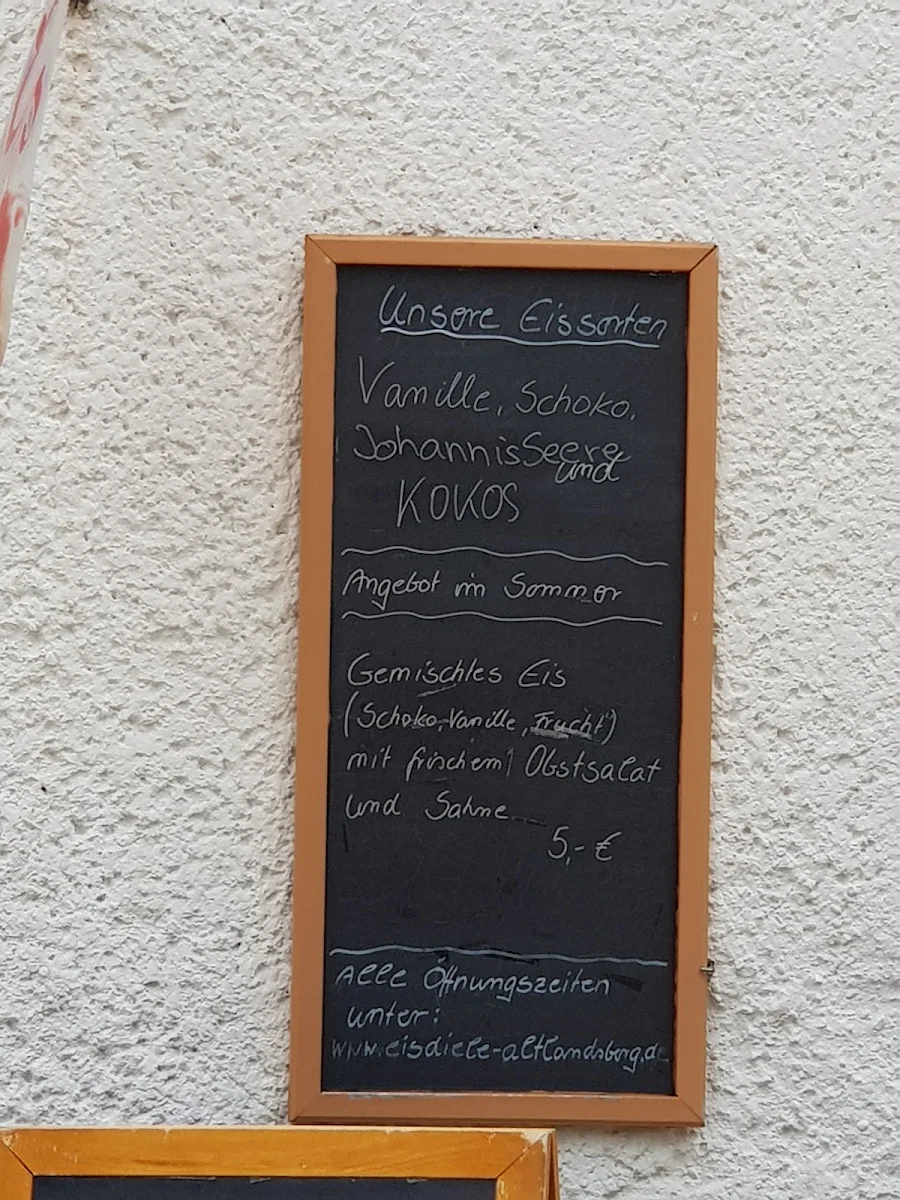 Unsere Eissorten
Vanille, Schoko,
Johannisbeere
und
KOKOS
Angebot im Sommer
Gemischtes Eis
(Schoko, Vanille, Frucht)
mit frischem Obstsalat
und Sahne
5,- €
Alle Öffnungszeiten
unter:
www.eisdiele-altlandsberg.de